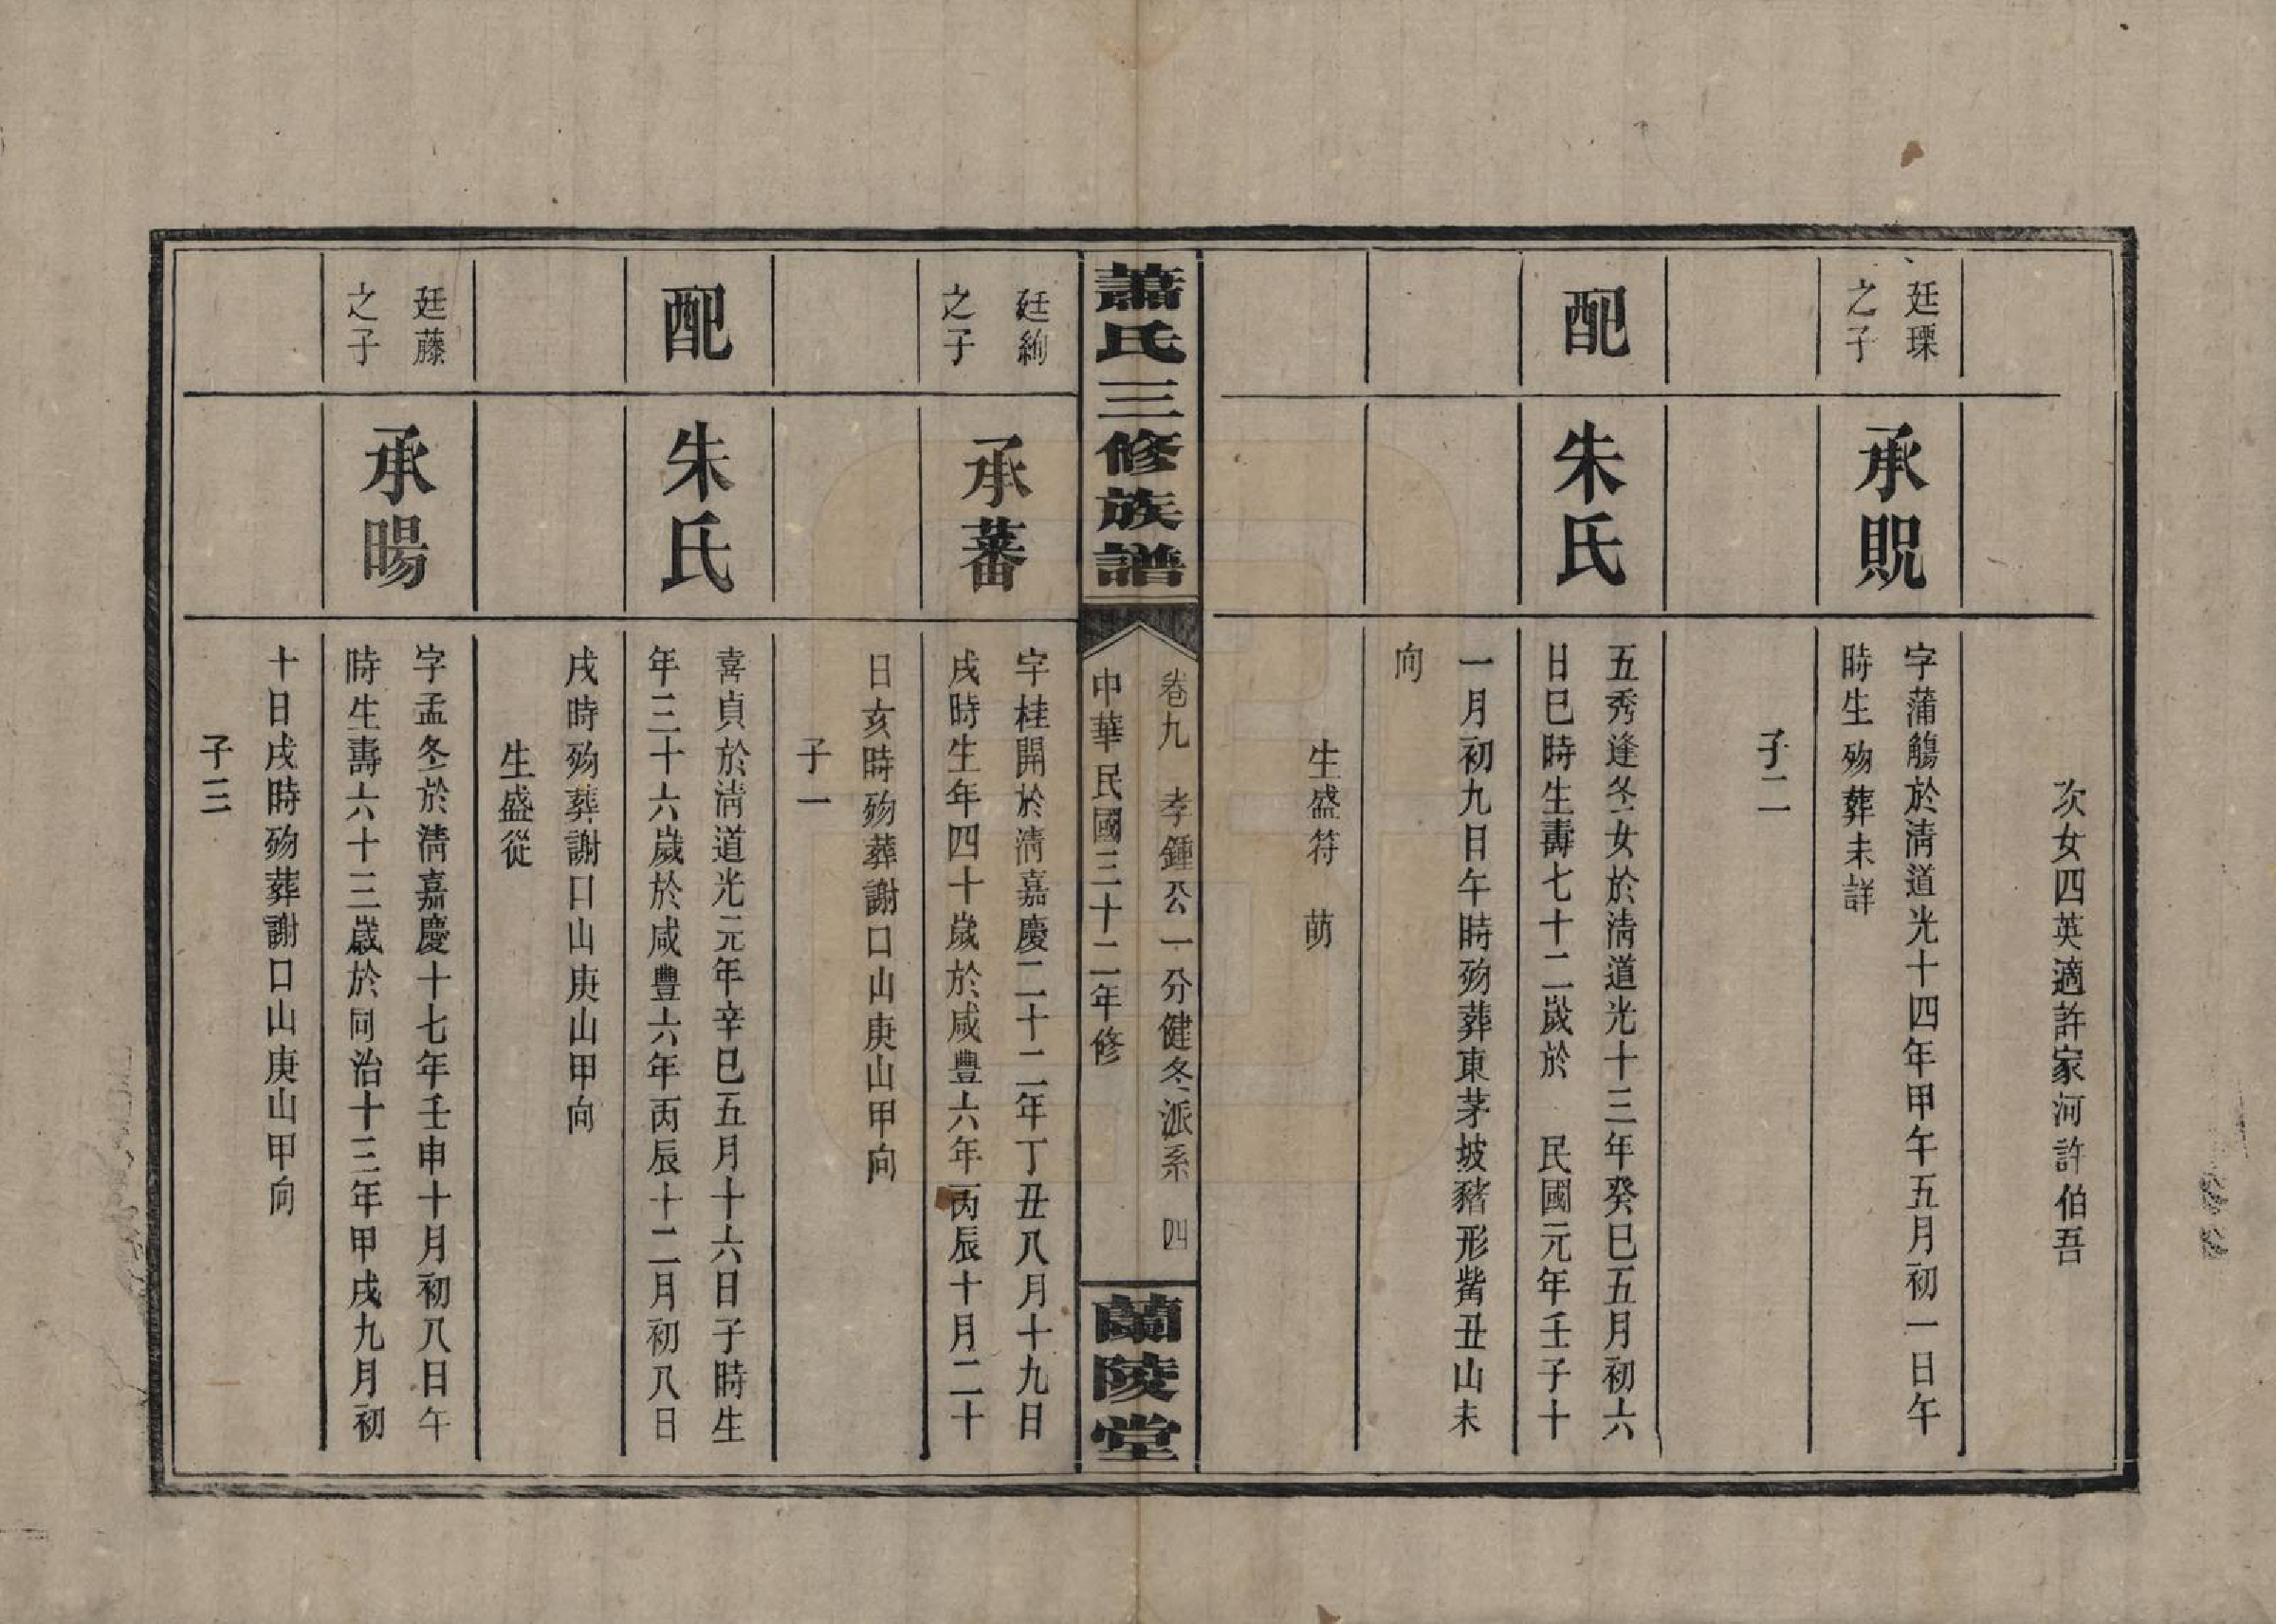 次女四英適許家河許伯吾
廷瑮
之子
承貺
字蒲觴於淸道光十四年甲午五月初一日午
時生歿葬未詳
子二
配
朱氏
五秀逢冬女於淸道光十三年癸巳五月初六
日巳時生壽七十二歲於 民國元年壬子十
一月初九日午時歿葬東茅坡豬形觜丑山未
向
生盛符 萌
蕭氏三修族譜
卷九 孝鍾公一分健冬派系 四
中華民國三十二年修
蘭陵堂
廷絢
之子
承蕃
字桂開於淸嘉慶二十二年丁丑八月十九日
戌時生年四十歲於咸豐六年丙辰十月二十
日亥時歿葬謝口山庚山甲向
子一
配
朱氏
喜貞於淸道光元年辛巳五月十六日子時生
年三十六歲於咸豐六年丙辰十二月初八日
戌時歿葬謝口山庚山甲向
生盛從
廷藤
之子
承暘
字孟冬於淸嘉慶十七年壬申十月初八日午
時生壽六十三歲於同治十三年甲戌九月初
十日戌時歿葬謝口山庚山甲向
子三